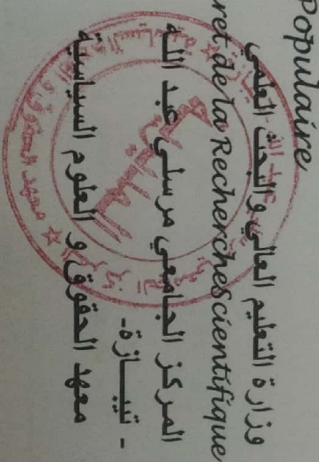 Populaire
وزارة التعليم العالي والبحث العلمي
ret de la Recherche Scientifique
المركز الجامعي مرسلي عبد الله
- تيبازة-
معهد الحقوق و العلوم السياسية
معهد الحقوق و العلوم السياسية